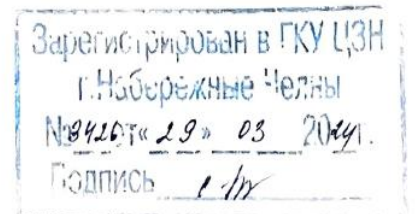 Зарегистрирован в ГКУ ЦЗН
г.Набережные Челны
№ 9426 от « 29 » 03 2024г.
Подпись